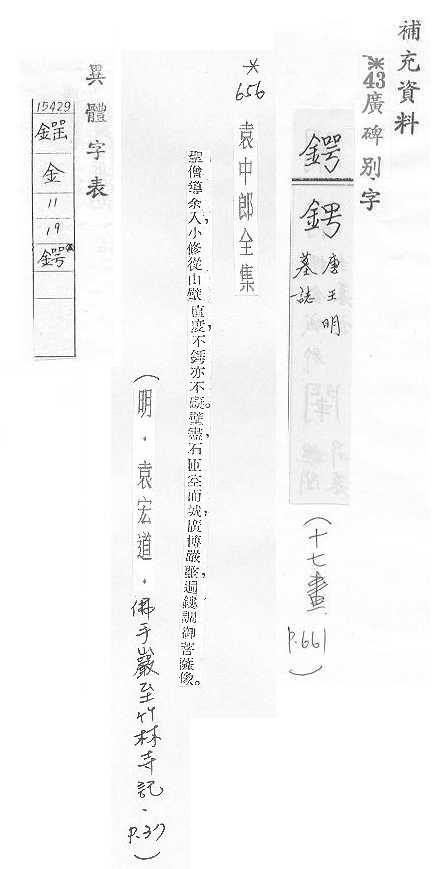 補充資料
※43廣碑別字
鍔
鍔
唐王明
墓誌
(十七畫 P.661)
※656
袁中郎全集
聖僧導余入,小修從山壁直度,不鍔亦不礙。壁盡,石而城,廣博嚴,鏤調御菩薩像。
(明.袁宏道.佛手巖至竹林寺記.P.37)
異體字表
15429
金
11
19
鍔